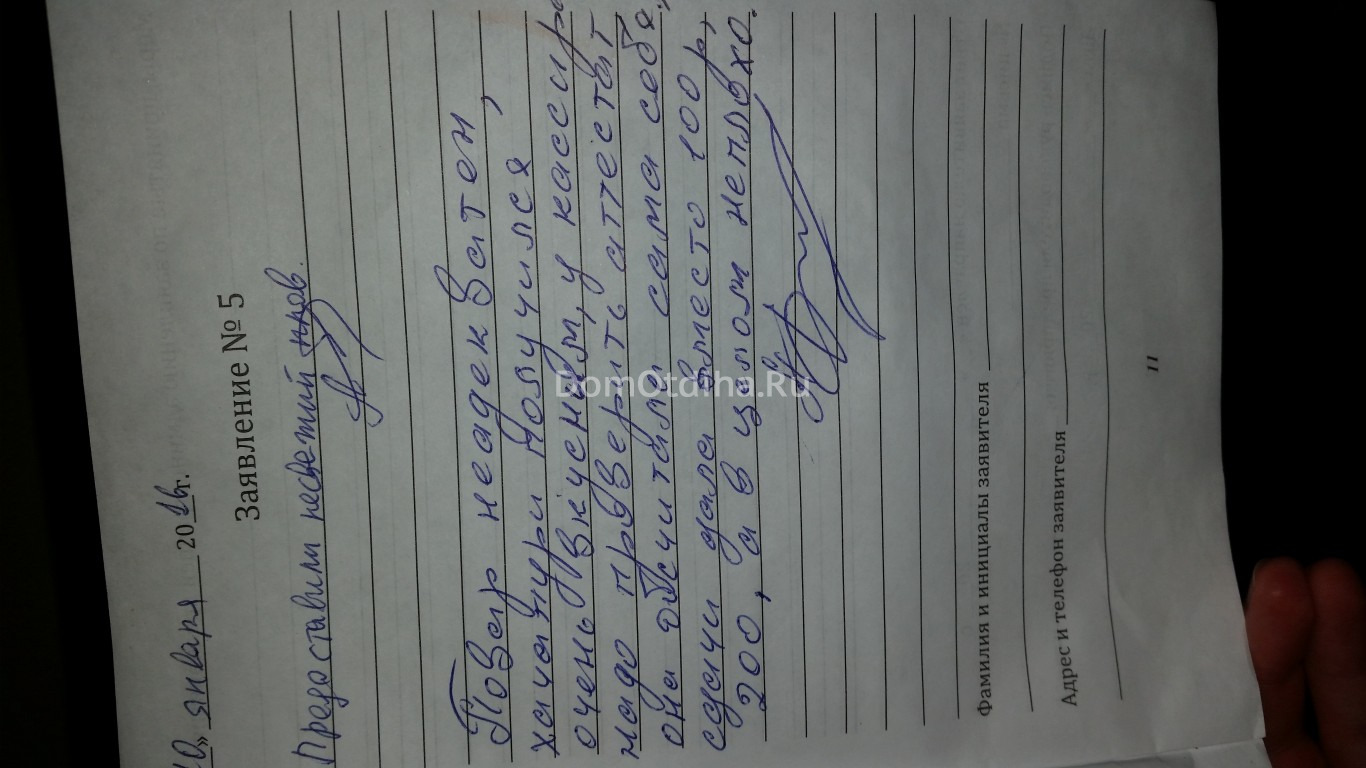 10» января 2016г.
Заявление № 5
Предоставили
Повар неадекватен,
хачапури получился
очень вкусным, у кассира
надо проверить аттестат
она обсчитала сама себя,
сдачи дала вместо 100 р,
200, а в целом неплохо.
DomOtdiha.Ru
Фамилия и инициалы заявителя
Адрес и телефон заявителя
11